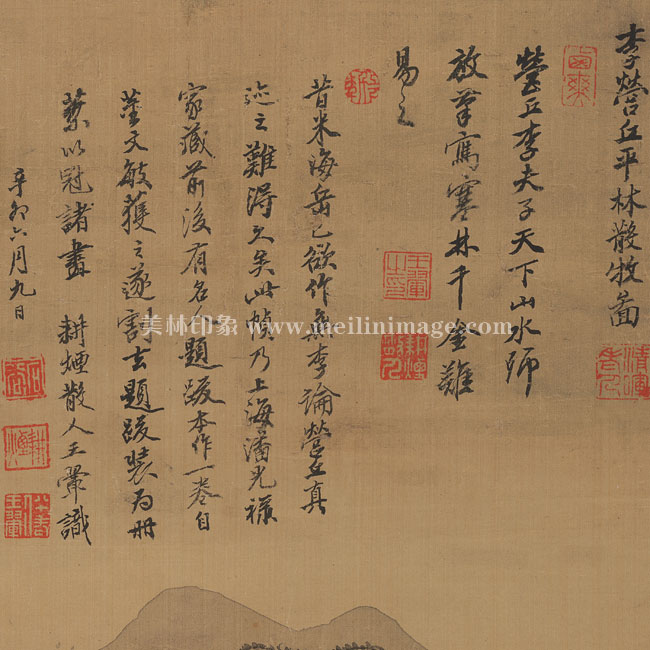 李營丘平林散牧畵
營丘李夫子天下山水師
放筆寫寒林千金難
易之
昔米海岳已欲作無李論營丘真
迹之難得久矣此幀乃上海潘光祿
家藏前後有名人題跋本作一卷自
董文敏獲之遂割去題跋裝為冊
葉以冠諸畫 耕煙散人王翬識
辛卯六月九日
美林印象 www.meilinimage.com